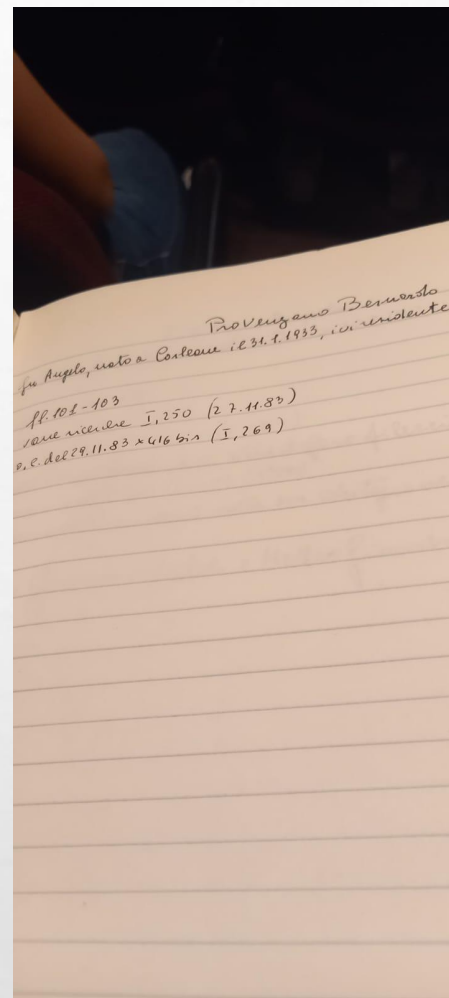 Provenzano Bernardo
fu Angelo, nato a Corleone il 31.1.1933, ivi residente
ff. 101-103
vane ricerche I, 250 (27.11.83)
o.c. del 29.11.83 x 416 bis (I, 269)